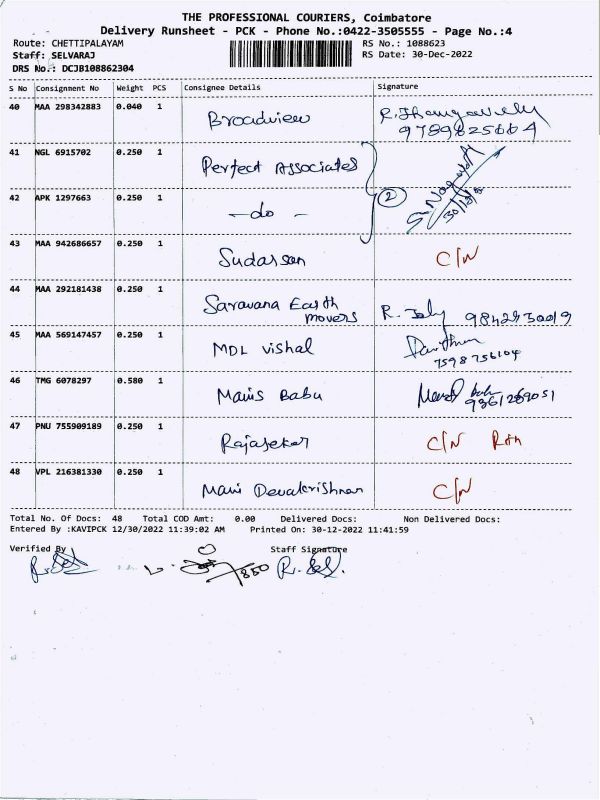 THE PROFESSIONAL COURIERS, Coimbatore
Delivery Runsheet - PCK - Phone No.:0422-3505555 - Page No.:4
Route: CHETTIPALAYAM RS No.: 1088623
Staff: SELVARAJ RS Date: 30-Dec-2022
DRS No.: DCJB108862304
S No Consignment No Weight PCS Consignee Details Signature
40 MAA 298342883 0.040 1 Broadview
9789825664
41 NGL 6915702 0.250 1 Perfect Associates
42 APK 1297663 0.250 1 - do - 2
43 MAA 942686657 0.250 1 Sudarsan C/N
44 MAA 292181438 0.250 1 Saravana Earth
movers R.
45 MAA 569147457 0.250 1 MDL vishal
7598756104
46 TMG 6078297 0.580 1 Manis Babu
9361269051
47 PNU 755909189 0.250 1 Rajasekar C/N
48 VPL 216381330 0.250 1 Mani Devakrishnan C/N
Total No. Of Docs: 48 Total COD Amt: 0.00 Delivered Docs: Non Delivered Docs:
Entered By :KAVIPCK 12/30/2022 11:39:02 AM Printed On: 30-12-2022 11:41:59
Verified By Staff Signature